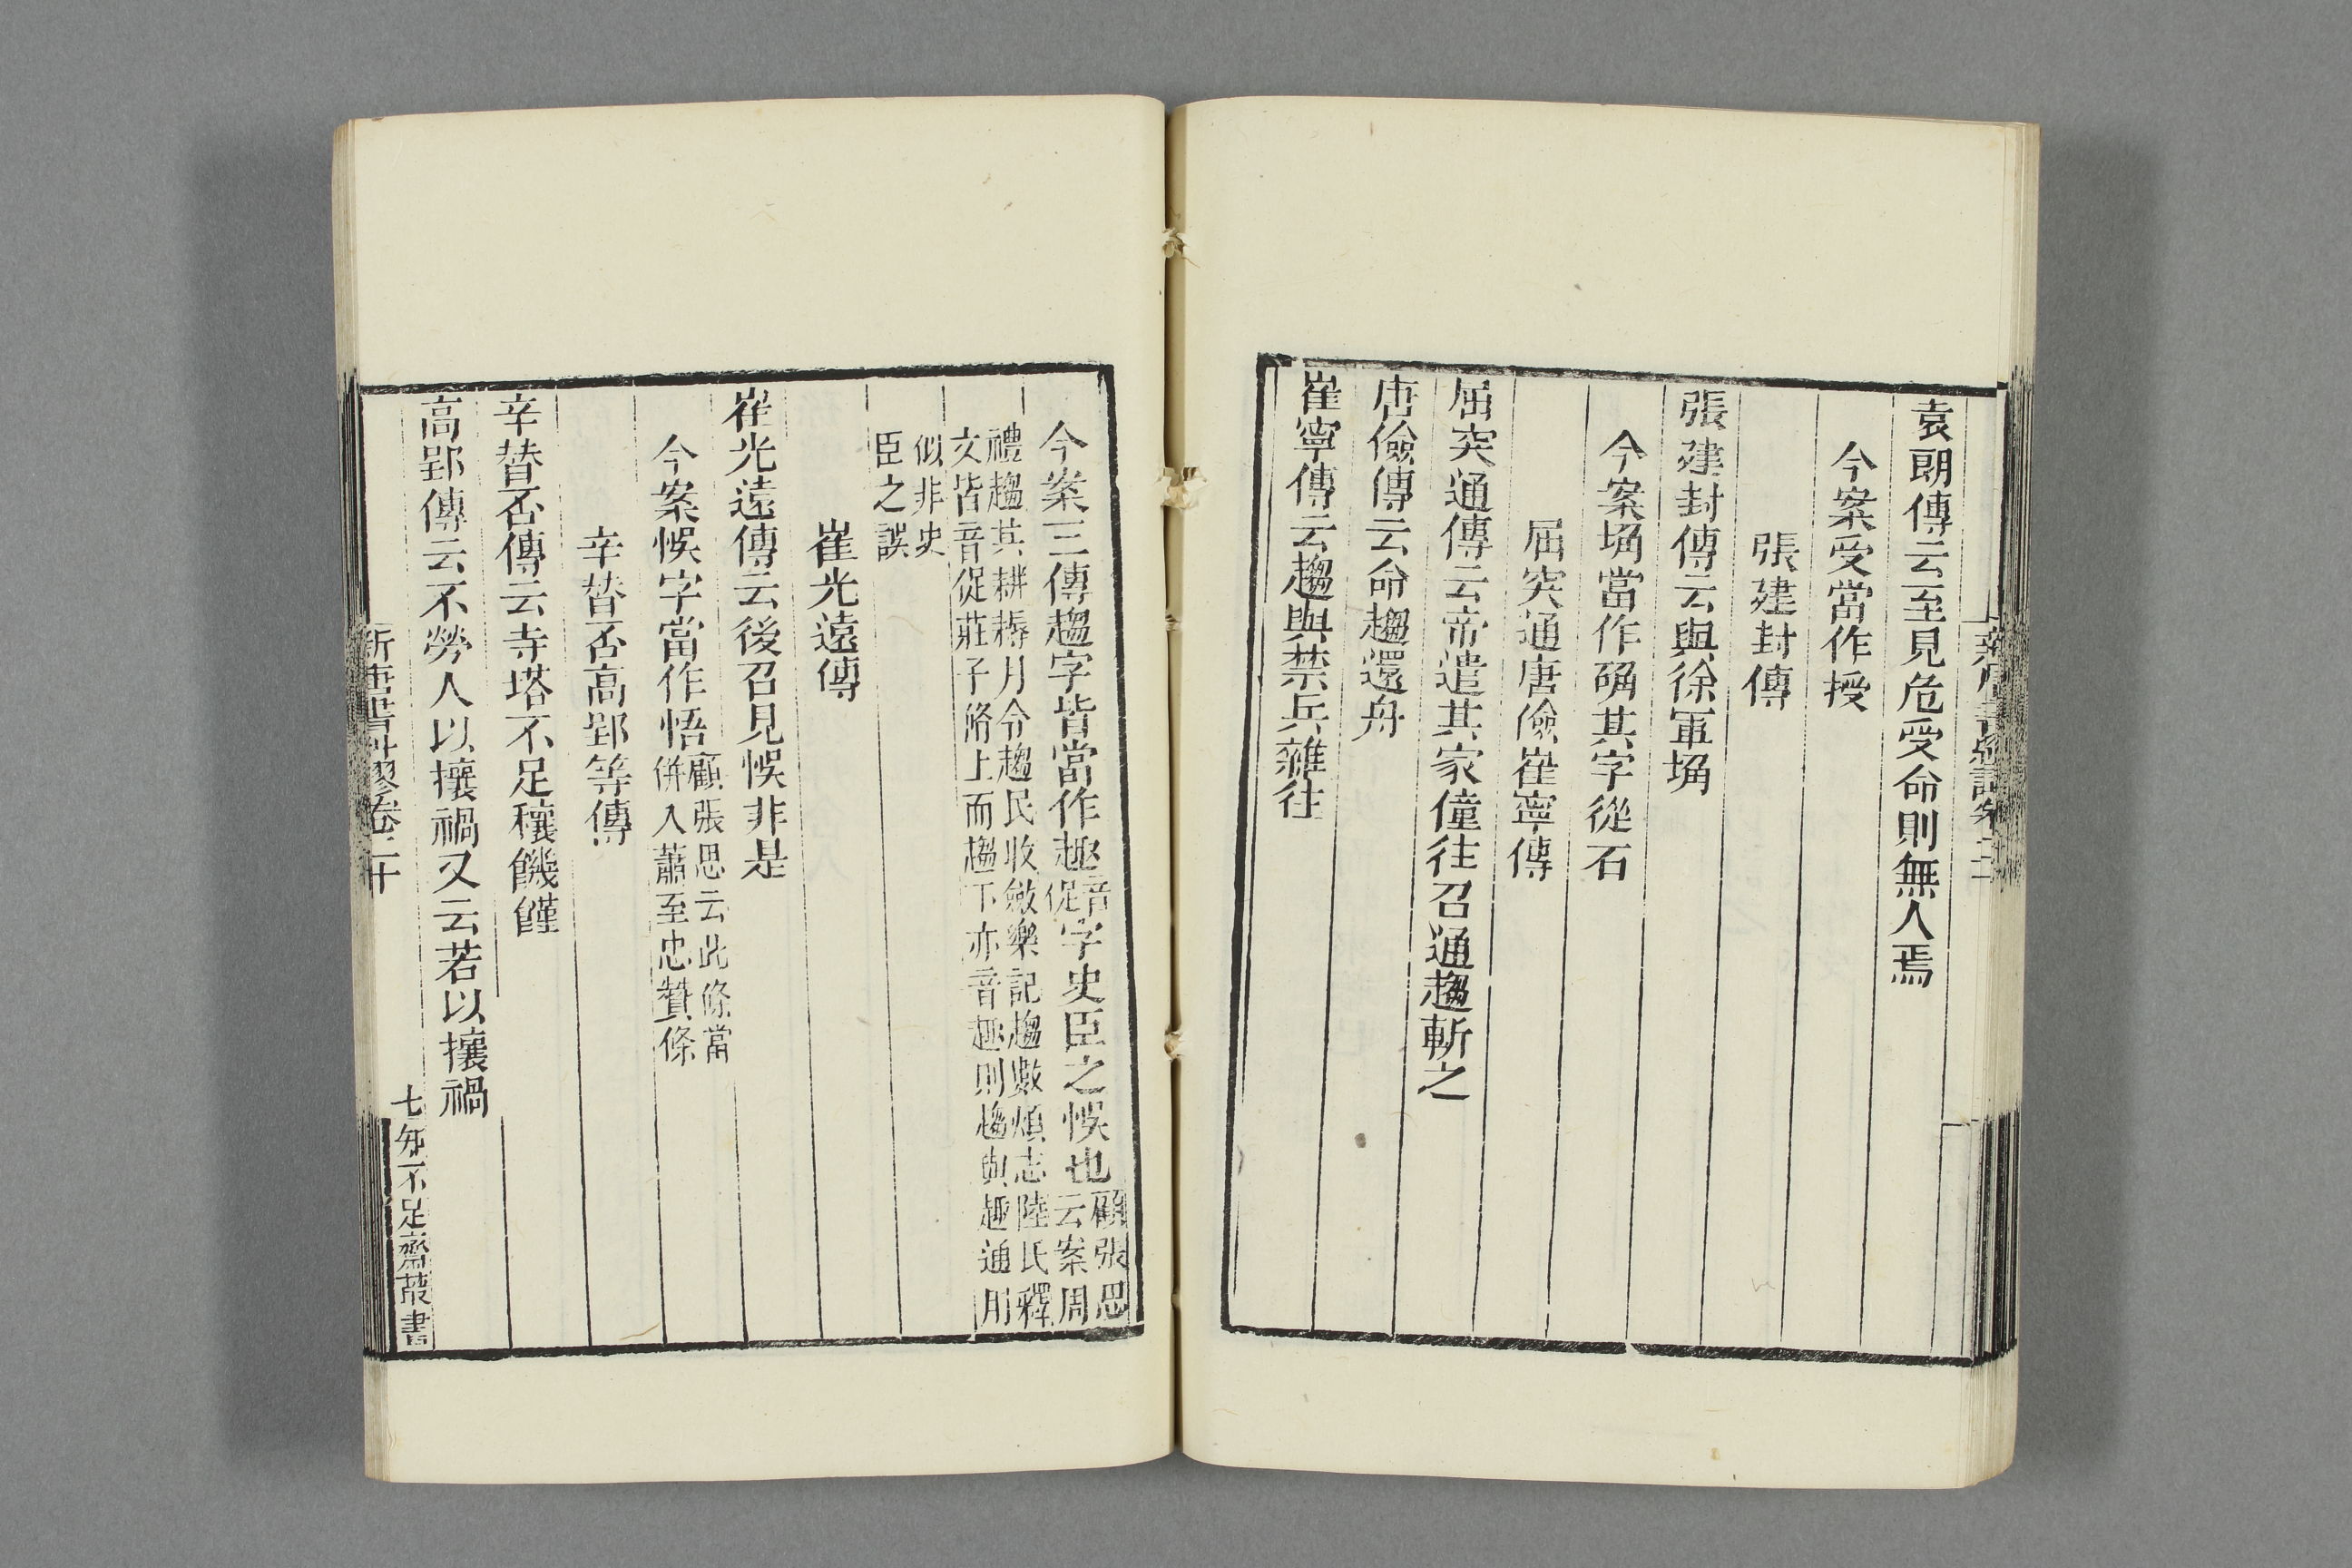 袁朗傳云至見危受命則無人焉
今案受當作授
張建封傳
張建封傳云與徐軍埆
今案埆當作确其字從石
屈突通唐儉崔寧傳
屈突通傳云帝遣其家僮往召通趨斬之
唐儉傳云命趨還舟
崔寧傳云趨與禁兵雜往
今案三傳趨字皆當作趣音促字史臣之悞也顧張思云案周
禮趨其耕耨月令趨民收斂樂記趨數煩志陸氏釋
文皆音促莊子脩上而趨下亦音趣則趨與趣通用
似非史
臣之誤
崔光遠傳
崔光遠傳云後召見悞非是
今案悞字當作悟顧張思云此條當
併入蕭至忠贊條
辛替否高郢等傳
辛替否傳云寺塔不足穰饑饉
高郢傳云不勞人以攘禍又云若以攘禍
新唐書糾繆卷二十
七
知不足齋叢書